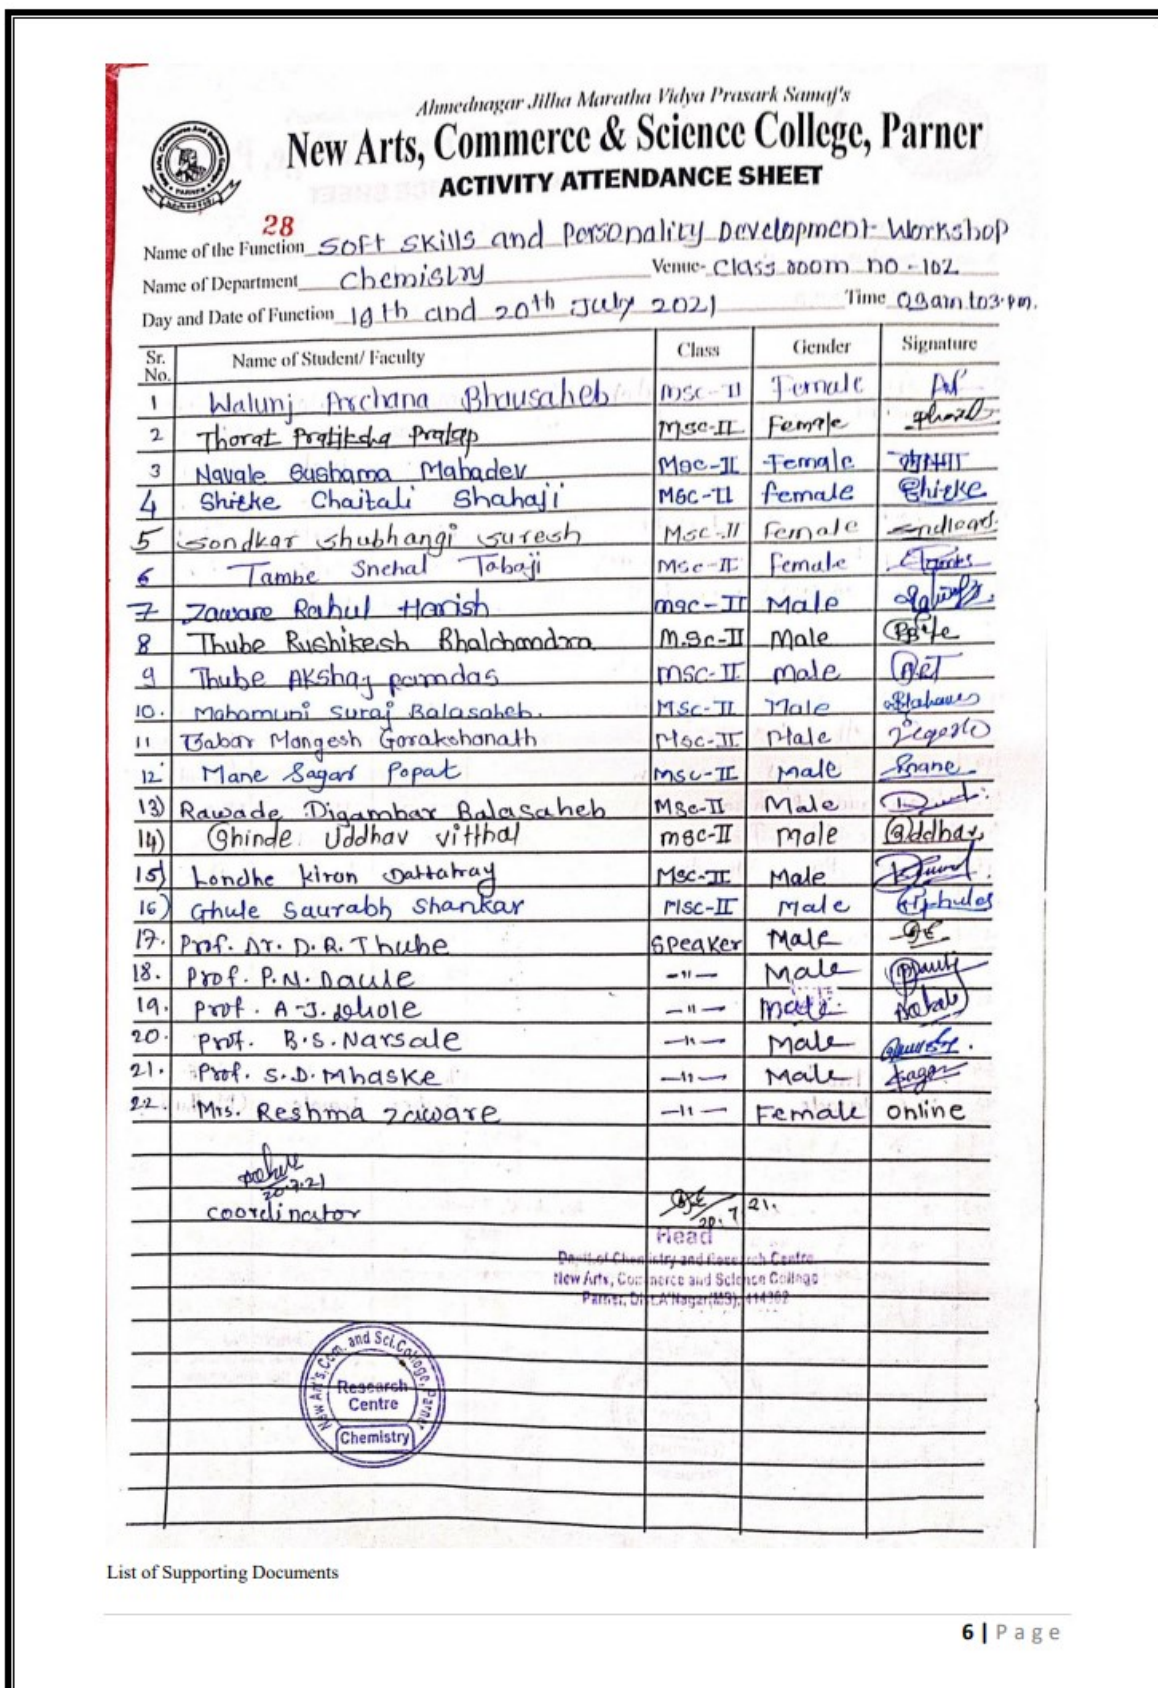 Ahmednagar Jilha Maratha Vidya Prasark Samaj's
New Arts, Commerce & Science College, Parner
ACTIVITY ATTENDANCE SHEET
28
Name of the Function Soft Skills and Personality Development Workshop
Name of Department Chemistry Venue- Class room no-102
Day and Date of Function 19th and 20th July 2021 Time 09am to 3.pm.
Sr. No. Name of Student/ Faculty Class Gender Signature
1 Walunj Archana Bhausaheb MSC-II Female
2 Thorat Pratiksha Pratap MSC-II Female
3 Navale Sushama Mahadev MSC-II Female
4 Shirke Chaitali Shahaji MSC-II female Shirke
5 Sondkar Shubhangi Suresh MSC-II Female
6 Tambe Snehal Tabaji MSC-II Female
7 Zaware Rahul Harish MSC-II Male
8 Thube Rushikesh Bhalchandra M.Sc-II Male
9 Thube Akshay Ramdas MSC-II Male
10. Mahamuni Suraj Balasaheb. MSC-II Male
11 Babar Mangesh Gorakshanath MSC-II Male
12 Mane Sagar Popat MSC-II Male Smane
13) Rawade Digambar Balasaheb MSC-II Male
14) Shinde Uddhav Vitthal MSC-II Male Uddhav
15) Londhe Kiran Dattatray MSC-II Male
16) Ghule Saurabh Shankar MSC-II Male
17. Prof. Dr. D.R. Thube Speaker Male
18. Prof. P.N. Daule -"- Male
19. Prof. A.J. Dhole -"- Male
20. Prof. B.S. Narsale -"- Male
21. Prof. S.D. Mhaske -"- Male
22. Mrs. Reshma Zaware -"- Female Online
20.7.21
coordinator
20.7.21.
Head
Dept. of Chemistry and Research Centre
New Arts, Commerce and Science College
Parner, Dist.A'Nagar(MS), 414302
New Art's, Com. and Sci. College, Parner
Research
Centre
Chemistry
List of Supporting Documents
6 | Page